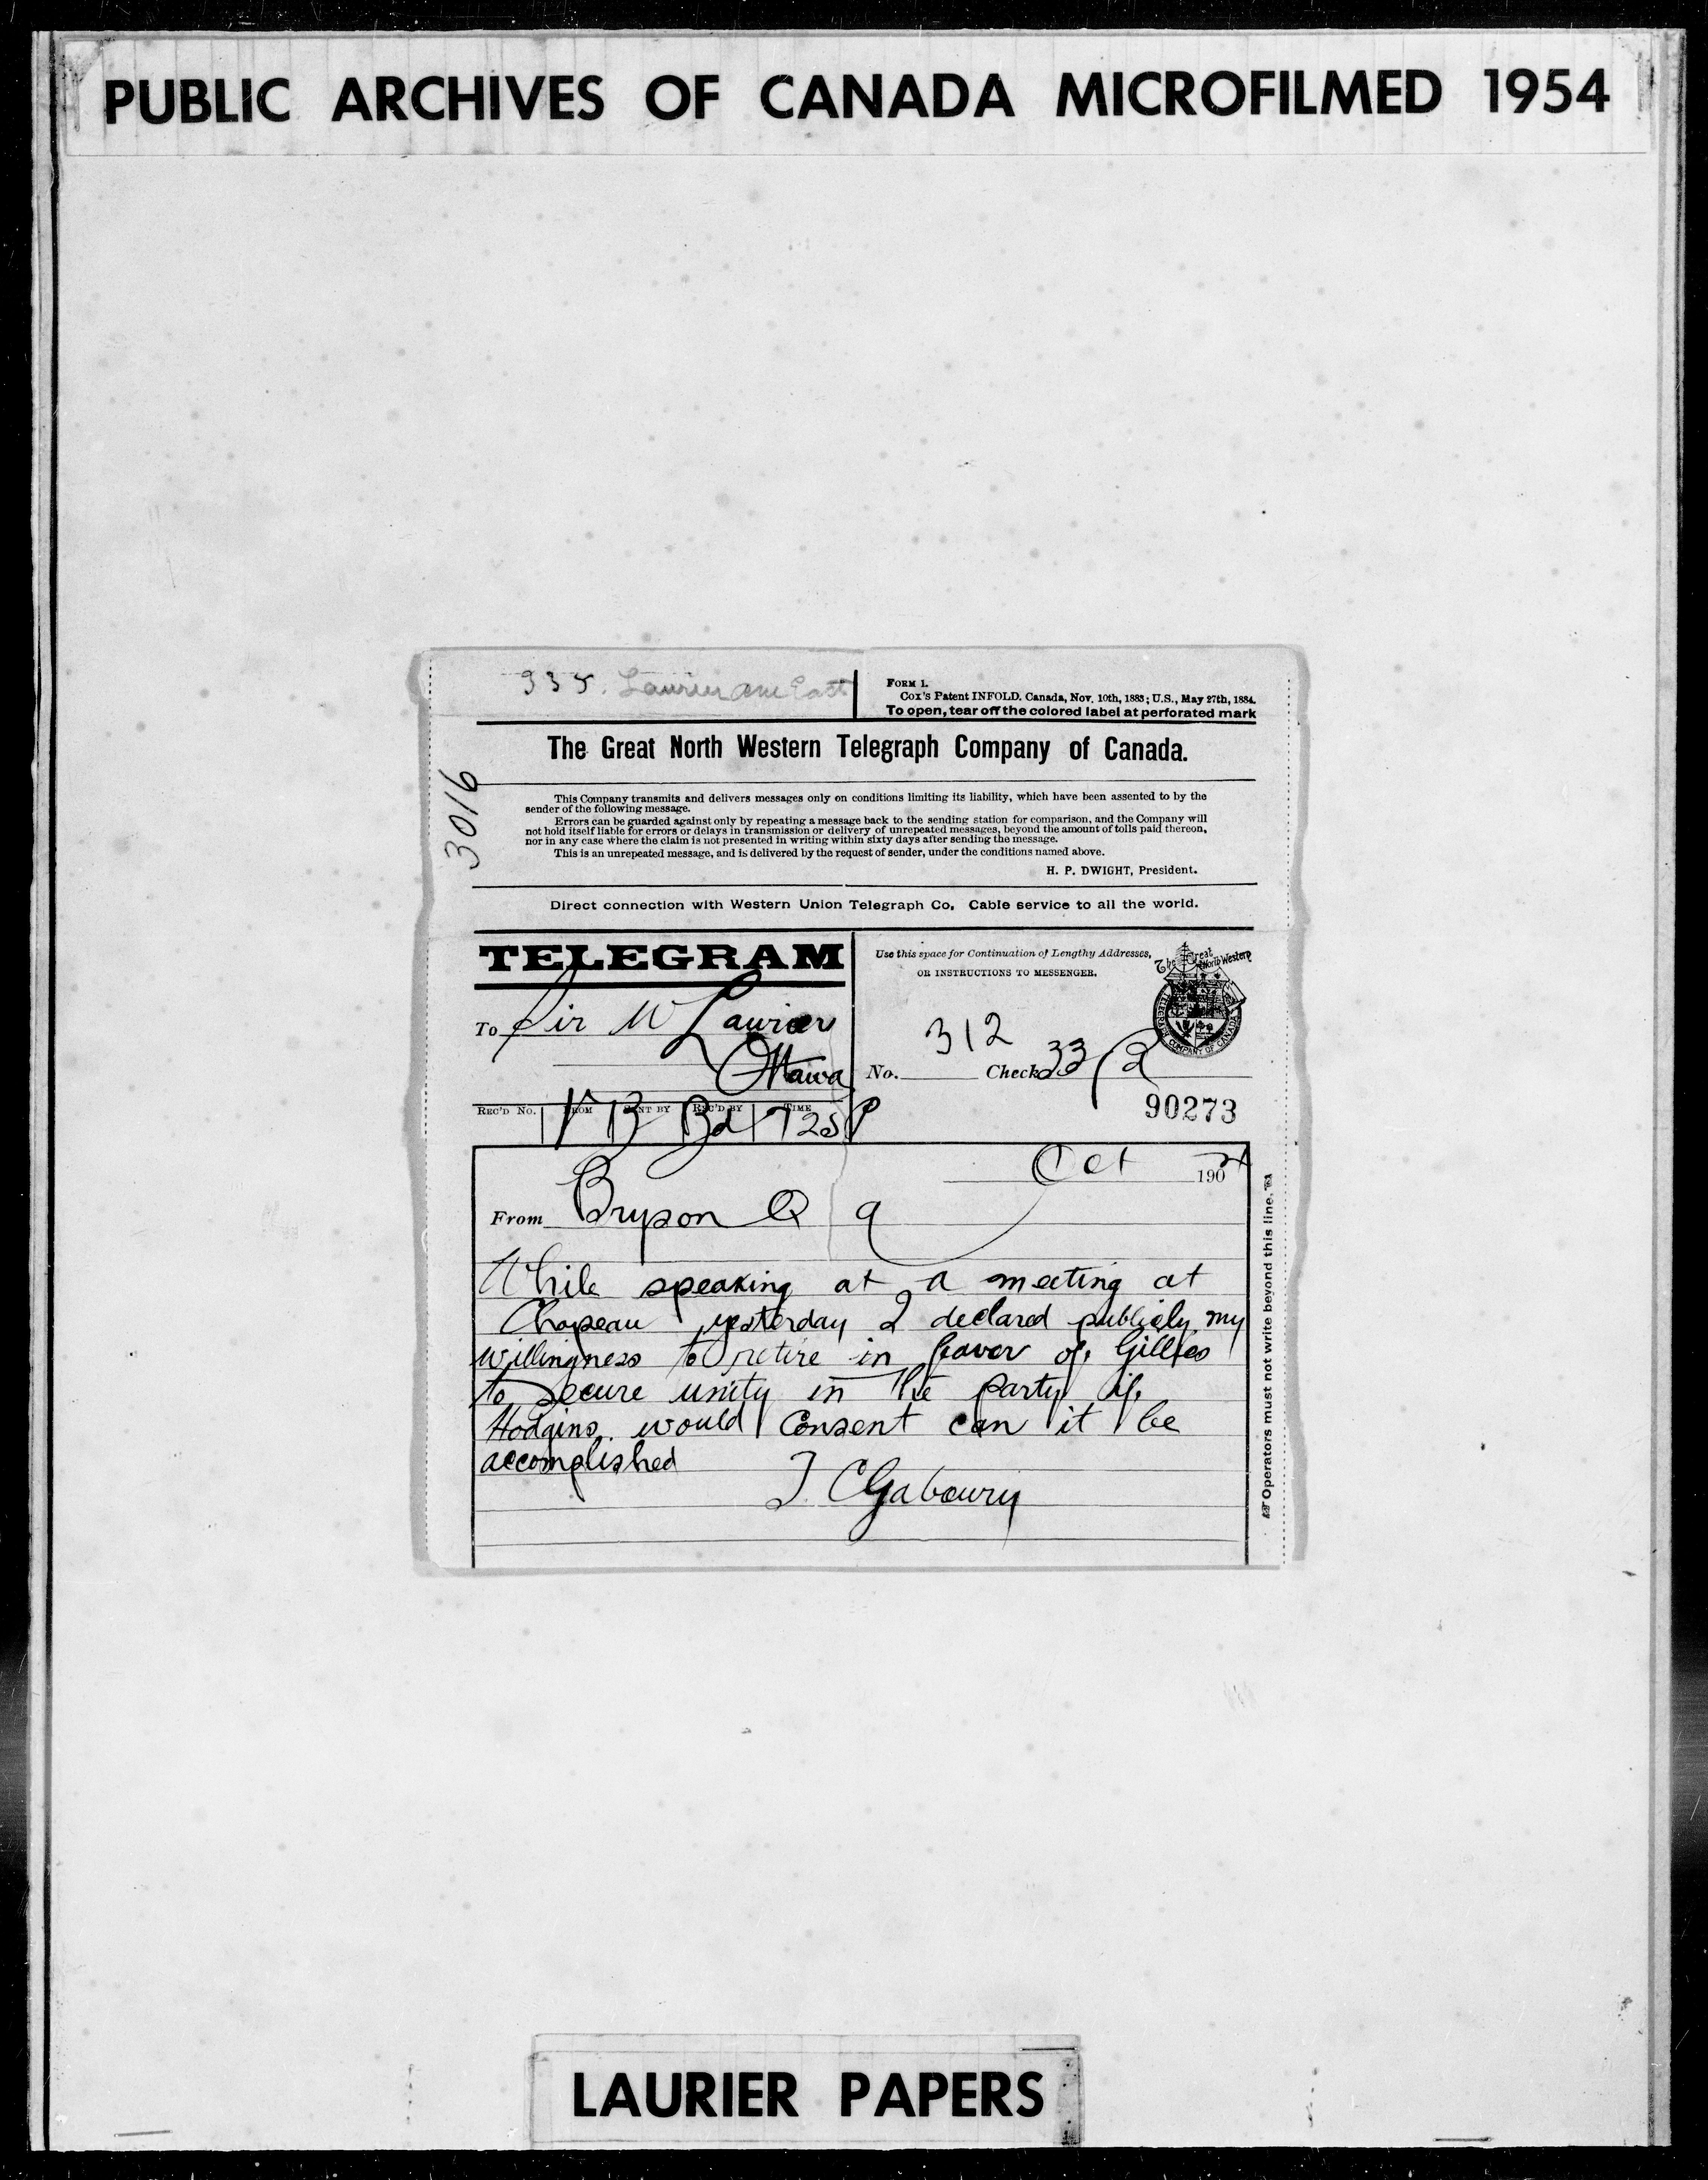 PUBLIC ARCHIVES OF CANADA MICROFILMED 1954
335. Laurier Ave East
FORM 1.
Cox's Patent INFOLD. Canada, Nov. 10th, 1883; U.S., May 27th, 1884.
To open, tear off the colored label at perforated mark
The Great North Western Telegraph Company of Canada.
3016
This Company transmits and delivers messages only on conditions limiting its liability, which have been assented to by the
sender of the following message.
Errors can be guarded against only by repeating a message back to the sending station for comparison, and the Company will
not hold itself liable for errors or delays in transmission or delivery of unrepeated messages, beyond the amount of tolls paid thereon,
nor in any case where the claim is not presented in writing within sixty days after sending the message.
This is an unrepeated message, and is delivered by the request of sender, under the conditions named above.
H. P. DWIGHT, President.
Direct connection with Western Union Telegraph Co. Cable service to all the world.
TELEGRAM
Use this space for Continuation of Lengthy Addresses,
OR INSTRUCTIONS TO MESSENGER.
The Great North Western
TELEGRAPH COMPANY OF CANADA
To Sir W Laurier
Ottawa
312
No. Check 33
REC'D No. FROM SENT BY REC'D BY TIME
VB Bd 725P
90273
Oct 190
From Bryson Q 9
While speaking at a meeting at
Chapeau yesterday I declared publicly my
willingness to retire in favor of Gillies
to secure unity in the party if
Hodgins would consent can it be
accomplished
T. C Gaboury
Operators must not write beyond this line.
LAURIER PAPERS